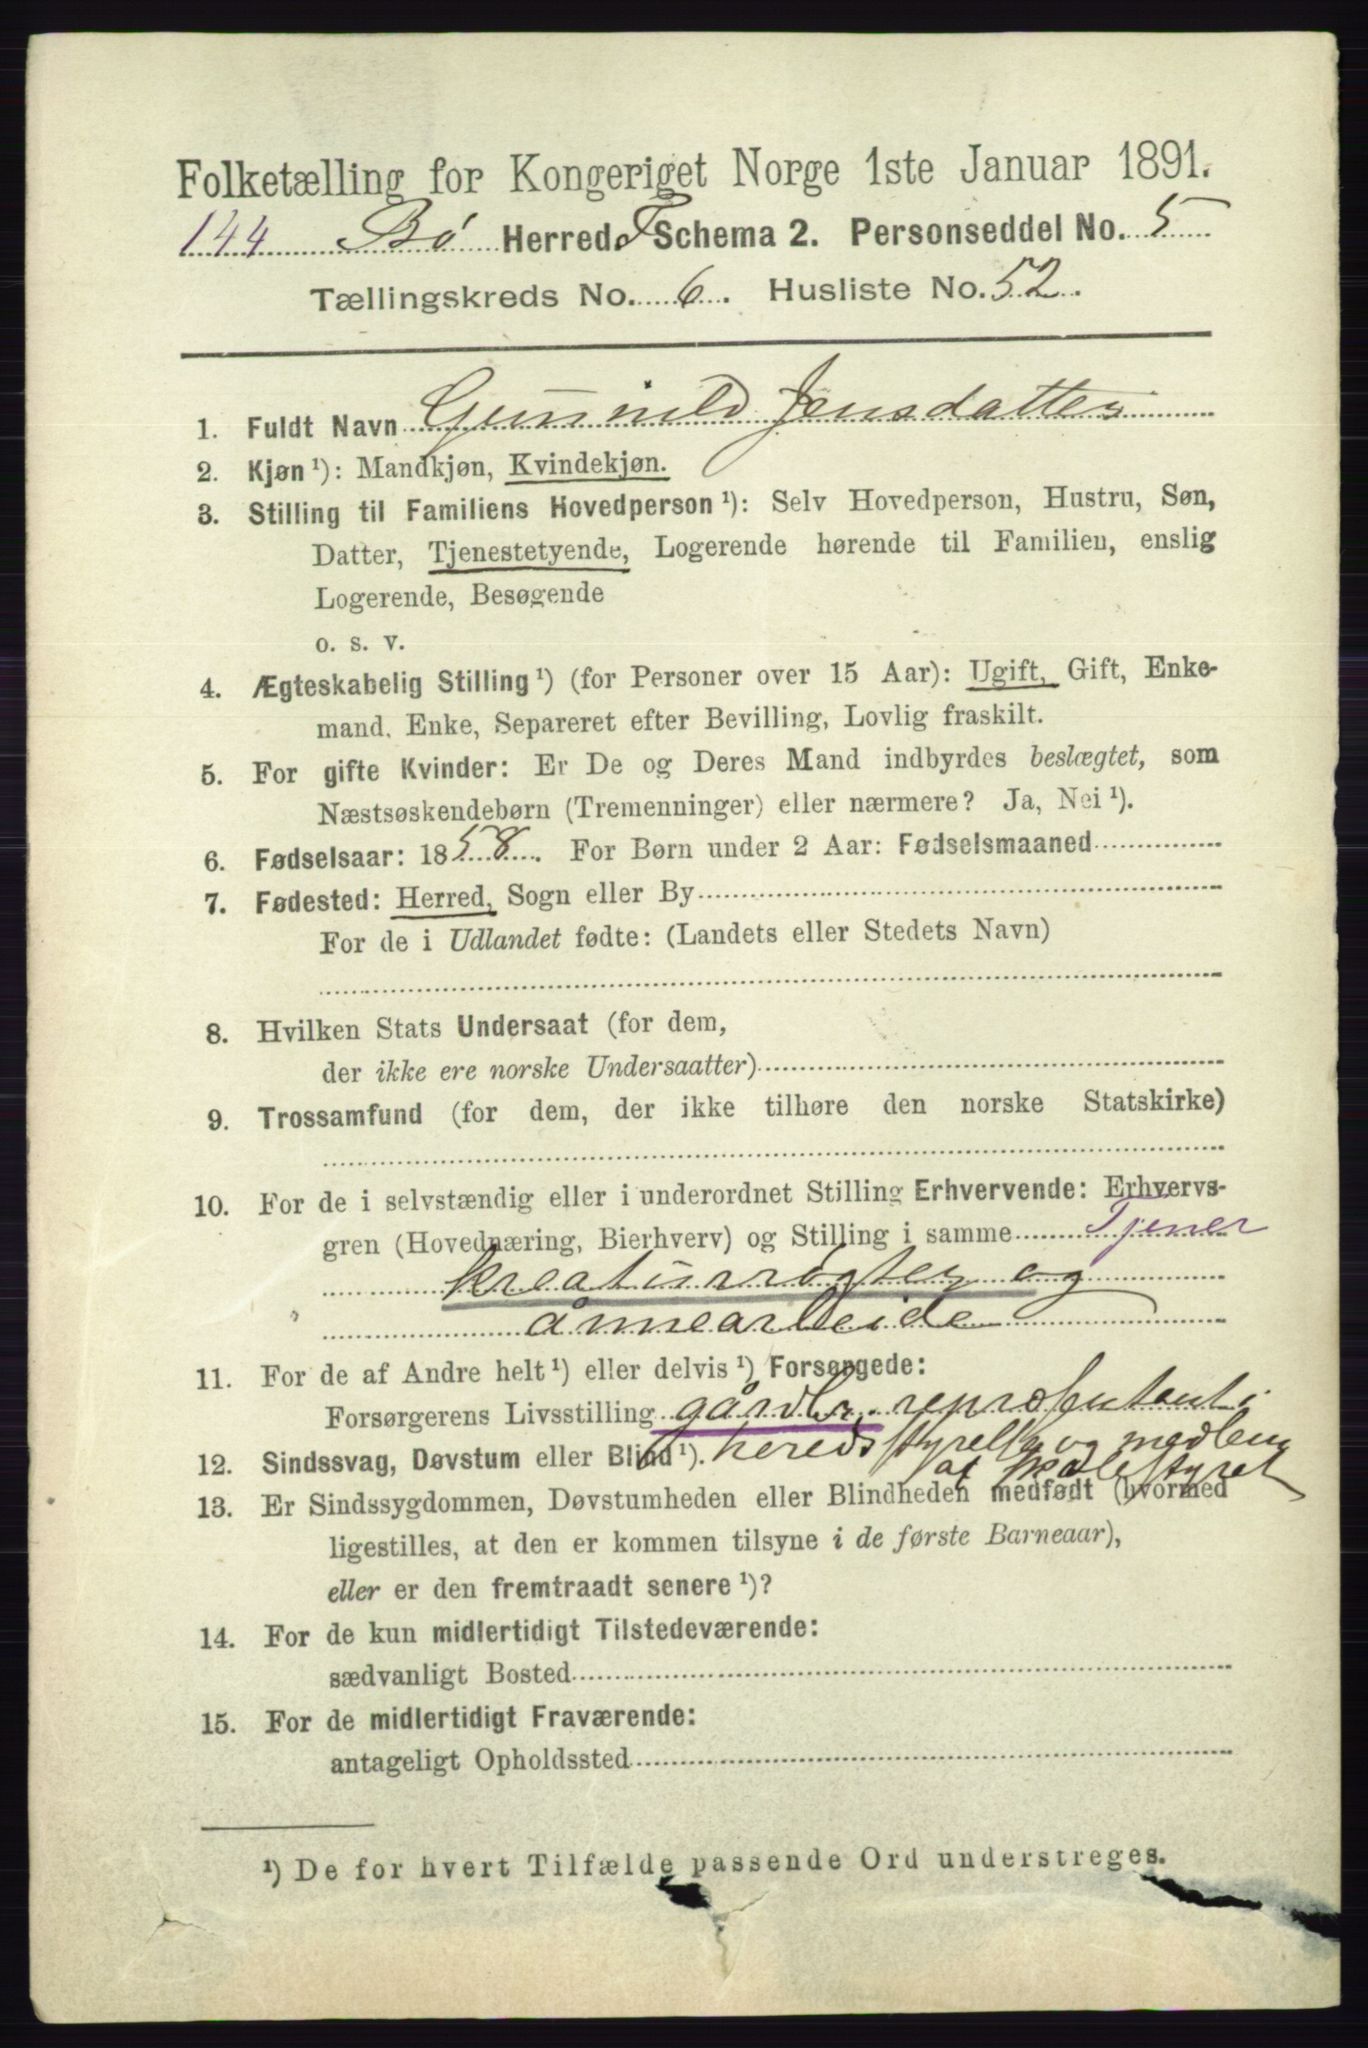 Folketælling for Kongeriget Norge 1ste Januar 1891.
144 Bø Herred. T Schema 2. Personseddel No. 5
Tællingskreds No. 6. Husliste No. 52.
1. Fuldt Navn Gunnild Jensdatter
2. Kjøn ¹): Mandkjøn, Kvindekjøn.
3. Stilling til Familiens Hovedperson ¹): Selv Hovedperson, Hustru, Søn,
Datter, Tjenestetyende, Logerende hørende til Familien, enslig
Logerende, Besøgende
o. s. v.
4. Ægteskabelig Stilling ¹) (for Personer over 15 Aar): Ugift, Gift, Enke-
mand, Enke, Separeret efter Bevilling, Lovlig fraskilt.
5. For gifte Kvinder: Er De og Deres Mand indbyrdes beslægtet, som
Næstsøskendebørn (Tremenninger) eller nærmere? Ja, Nei ¹).
6. Fødselsaar: 1858. For Børn under 2 Aar: Fødselsmaaned
7. Fødested: Herred, Sogn eller By
For de i Udlandet fødte: (Landets eller Stedets Navn)
8. Hvilken Stats Undersaat (for dem,
der ikke ere norske Undersaatter)
9. Trossamfund (for dem, der ikke tilhøre den norske Statskirke)
10. For de i selvstændig eller i underordnet Stilling Erhvervende: Erhvervs-
gren (Hovednæring, Bierhverv) og Stilling i samme Tjener
kreaturrøgter og
ånnearbeide
11. For de af Andre helt ¹) eller delvis ¹) Forsørgede:
Forsørgerens Livsstilling gårdbr. repræsentant i
12. Sindssvag, Døvstum eller Blind ¹). heredsstyrelse og medlem
af skolestyret
13. Er Sindssygdommen, Døvstumheden eller Blindheden medfødt (hvormed
ligestilles, at den er kommen tilsyne i de første Barneaar),
eller er den fremtraadt senere ¹)?
14. For de kun midlertidigt Tilstedeværende:
sædvanligt Bosted
15. For de midlertidigt Fraværende:
antageligt Opholdssted
¹) De for hvert Tilfælde passende Ord understreges.